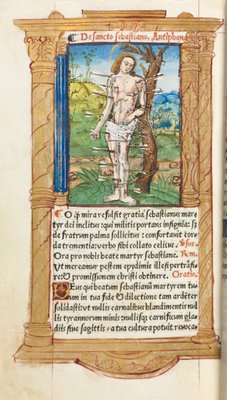 De sancto sebastiano. Antiphona
O q̄ mira refulsit gratia sebastianus mar
tyr dei inclitus: qui militis portans insignia: s̄
de fratrum palma sollicitus: confortauit cor
da trementia: verbo sibi collato celitus.
Ora pro nobis beate martyr sebastiane.
Ut mereamur pestem epydimie illesi pertrāsi
re: & promissionem christi obtinere. Oratio.
Deus qui beatum sebastianū martyrem tuum
in tua fide & dilectione tam ardēter
solidasti: vt nullis carnalibus blandimentis nul
lis tyrannorum minis: nullisq; carnificum gla
diis siue sagittis, a tua cultura potuit reuoca